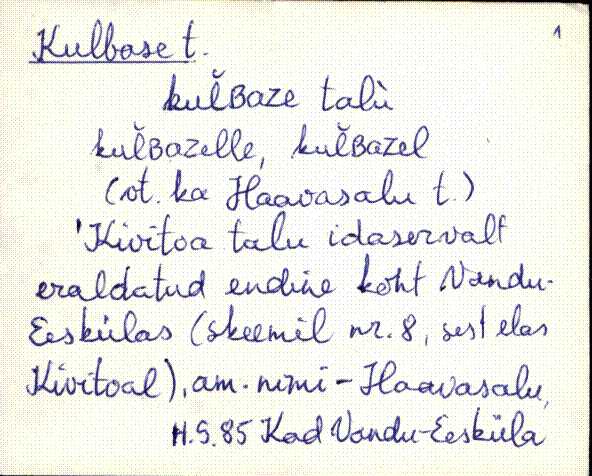 1
Kulbase t.
kul̆ʙaze talù
kul̆ʙazelle, kul̆ʙazel
(vt. ka Haavasalu t.)
'Kivitoa talu idaservalt
eraldatud endine koht Vandu-
Eeskülas (skeemil nr. 8, sest elas
Kivitoal), am. nimi - Haavasalu,
H.S. 85 Kad Vandu-Eesküla